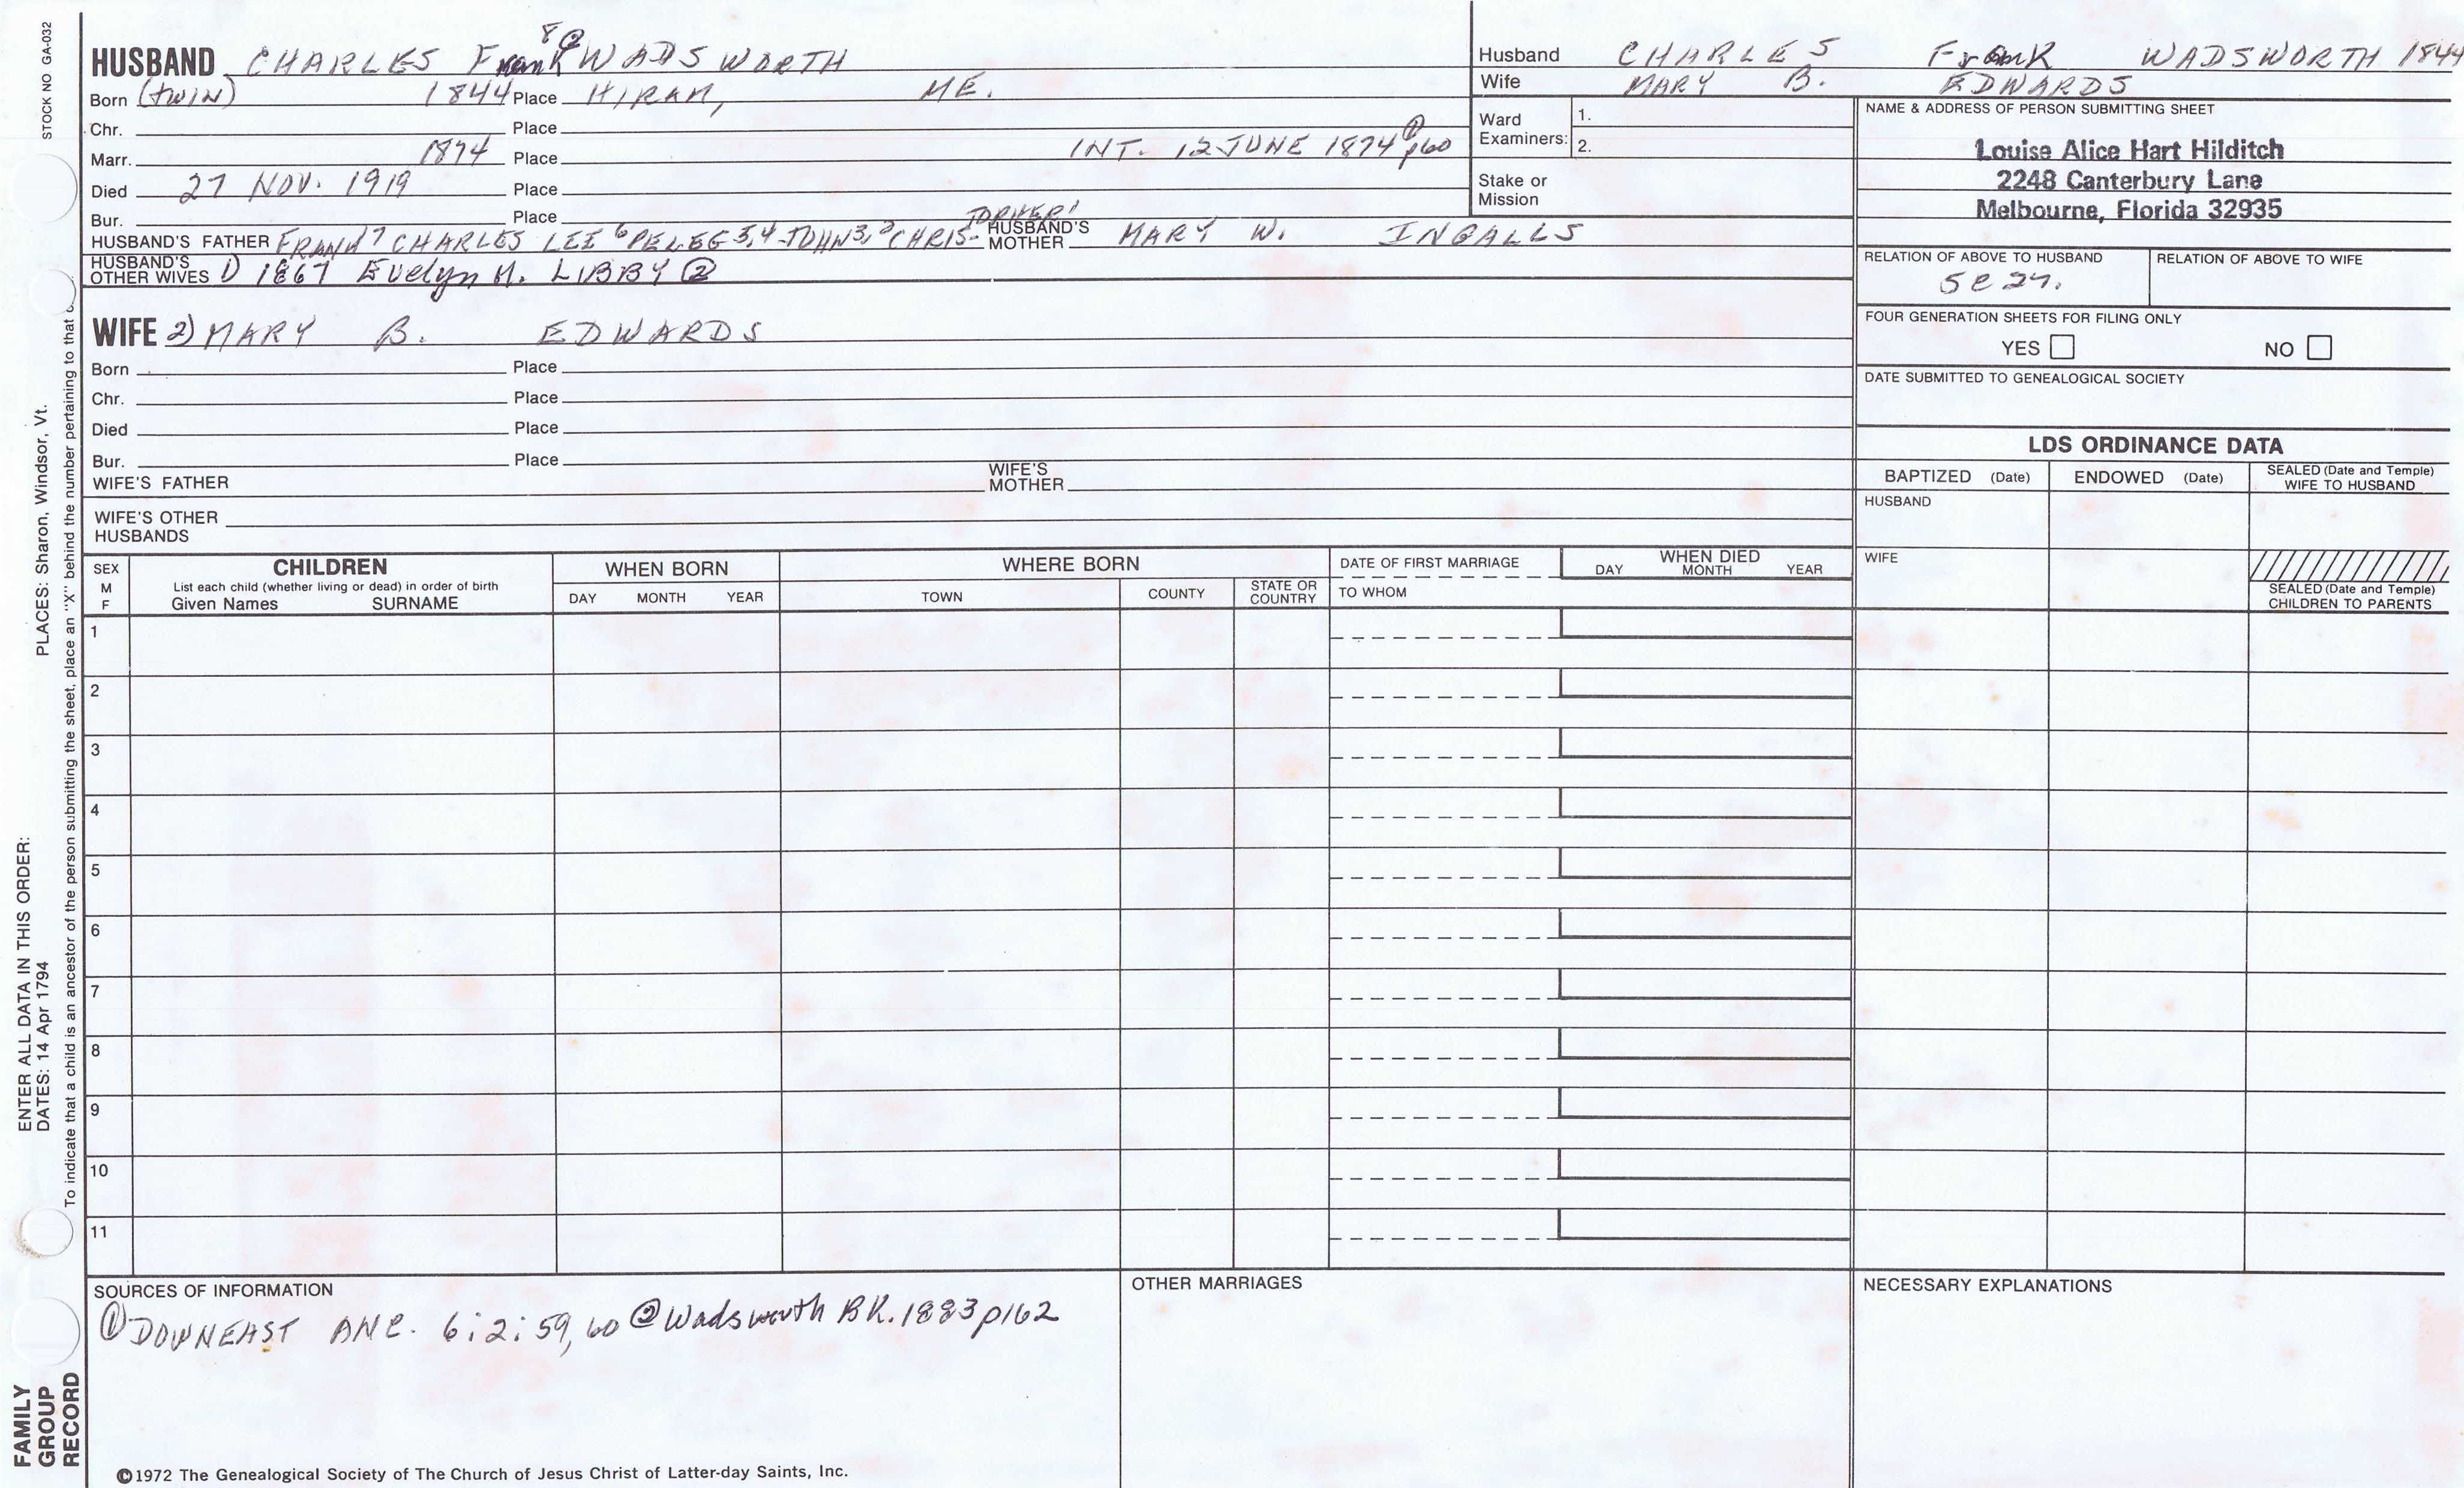 STOCK NO GA-032
PLACES: Sharon, Windsor, Vt.
ENTER ALL DATA IN THIS ORDER:
DATES: 14 Apr 1794
To indicate that a child is an ancestor of the person submitting the sheet, place an "X" behind the number pertaining to that
FAMILY
GROUP
RECORD
8 ②
HUSBAND CHARLES Frank WADSWORTH
Born (twin) 1844 Place HIRAM, ME.
Chr. Place
Marr. 1874 Place INT. 12 JUNE 1874 ① p60
Died 27 NOV. 1919 Place
Bur. Place
HUSBAND'S FATHER FRANK 7 CHARLES LEE 6 PELEG 5,4 JOHN 3, 2 CHRIS- TOPHER 1 HUSBAND'S MOTHER MARY W. INGALLS
HUSBAND'S OTHER WIVES 1) 1867 Evelyn M. LIBBY ②
WIFE 2) MARY B. EDWARDS
Born Place
Chr. Place
Died Place
Bur. Place
WIFE'S FATHER WIFE'S MOTHER
WIFE'S OTHER HUSBANDS
Husband CHARLES Frank WADSWORTH 1844
Wife MARY B. EDWARDS
Ward Examiners: 1.
2.
Stake or Mission
NAME & ADDRESS OF PERSON SUBMITTING SHEET
Louise Alice Hart Hilditch
2248 Canterbury Lane
Melbourne, Florida 32935
RELATION OF ABOVE TO HUSBAND RELATION OF ABOVE TO WIFE
FOUR GENERATION SHEETS FOR FILING ONLY
YES NO
DATE SUBMITTED TO GENEALOGICAL SOCIETY
LDS ORDINANCE DATA
BAPTIZED (Date) ENDOWED (Date) SEALED (Date and Temple) WIFE TO HUSBAND
HUSBAND
WIFE
SEALED (Date and Temple) CHILDREN TO PARENTS
SEX M F
CHILDREN
List each child (whether living or dead) in order of birth
Given Names SURNAME
WHEN BORN
DAY MONTH YEAR
WHERE BORN
TOWN COUNTY STATE OR COUNTRY
DATE OF FIRST MARRIAGE
TO WHOM
WHEN DIED
DAY MONTH YEAR
1
2
3
4
5
6
7
8
9
10
11
SOURCES OF INFORMATION
① DOWNEAST ANC. 6:2:59,60 ② Wadsworth BK. 1883 p162
OTHER MARRIAGES
NECESSARY EXPLANATIONS
©1972 The Genealogical Society of The Church of Jesus Christ of Latter-day Saints, Inc.